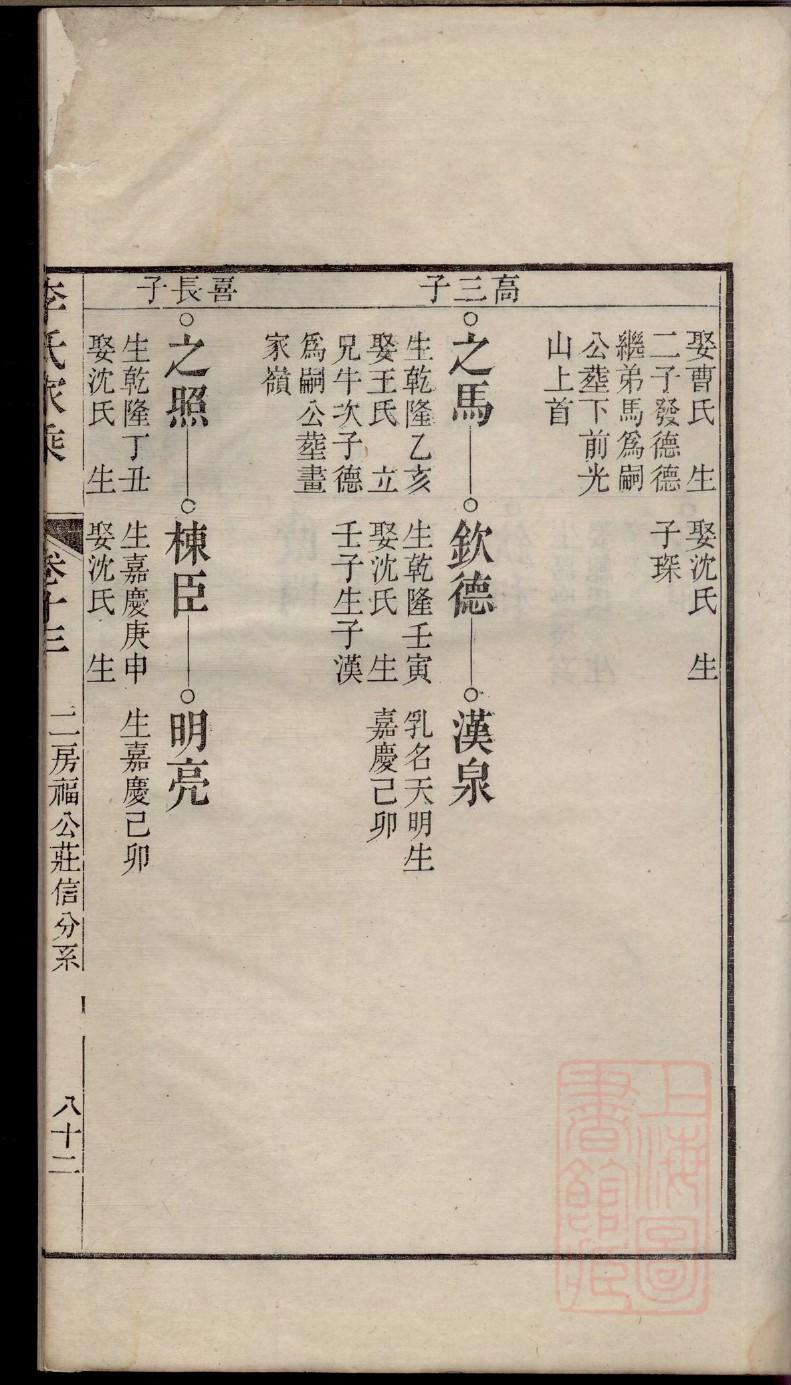 娶曹氏　生
二子發德德
繼弟馬爲嗣
公塟下前光
山上首
娶沈氏　生
子琛
高三子
之馬
生乾隆乙亥
娶王氏　立
兄牛次子德
爲嗣公塟畫
家嶺
欽德
生乾隆壬寅
娶沈氏　生
壬子生子漢
漢泉
乳名天明生
嘉慶己卯
喜長子
之照
生乾隆丁丑
娶沈氏　生
棟臣
生嘉慶庚申
娶沈氏　生
明亮
生嘉慶己卯
李氏家乘
卷十三
二房福公莊信分系
八十二
上海圖
書館藏